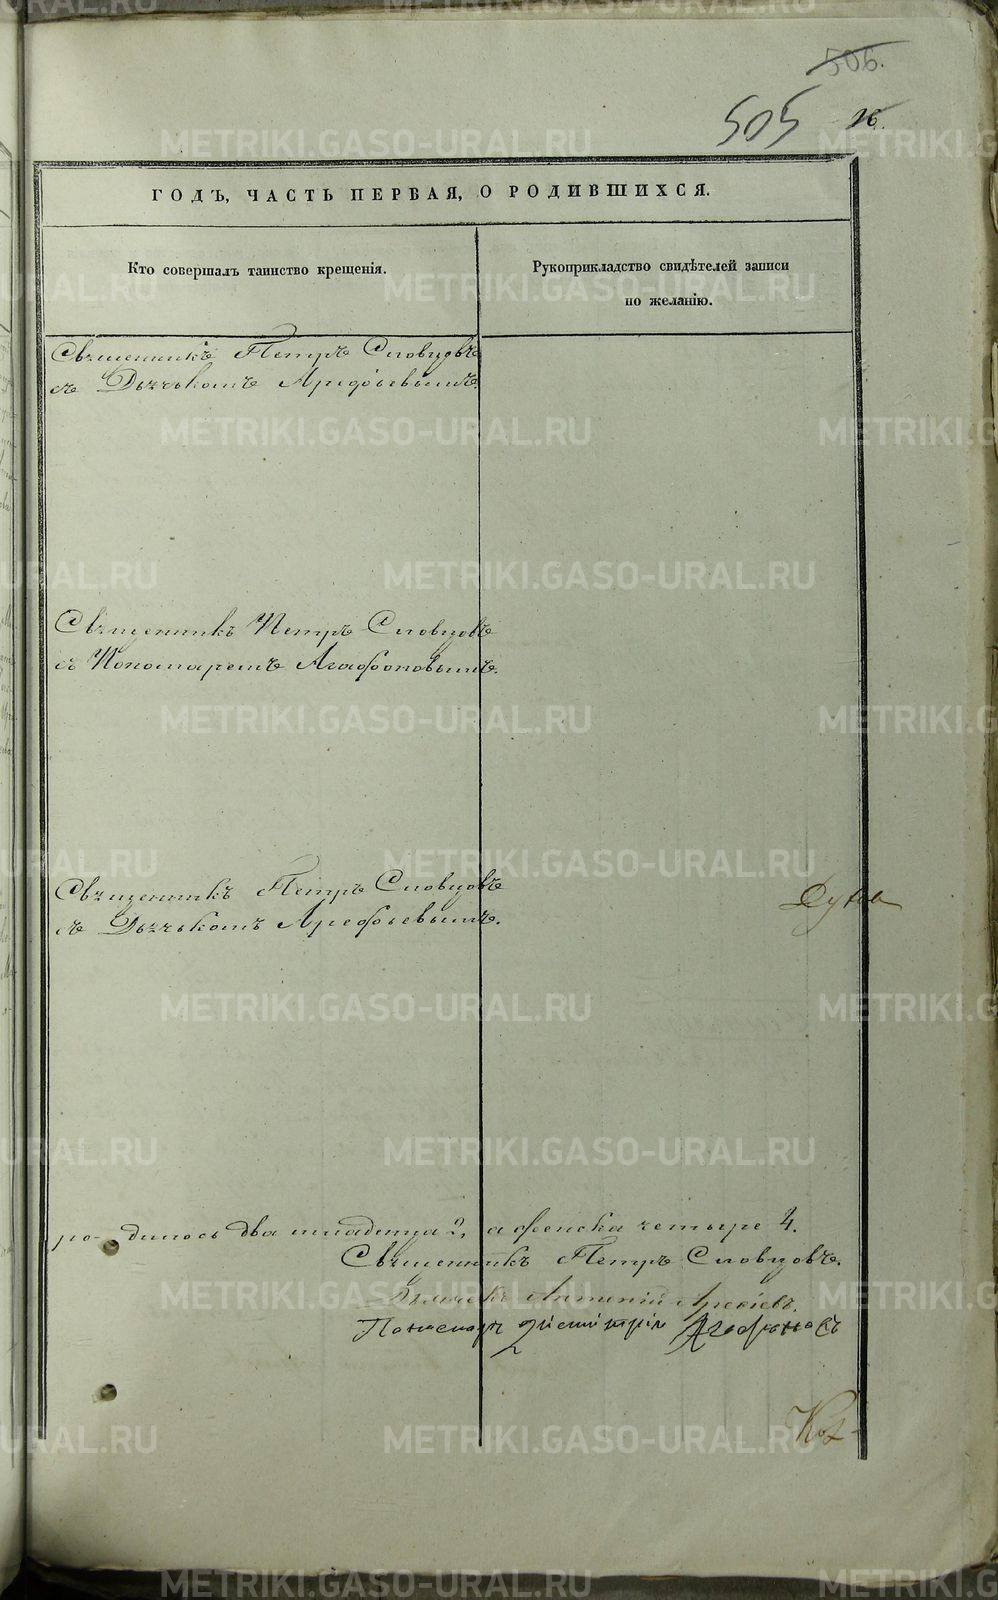 506.
505 26.
ГОДЪ, ЧАСТЬ ПЕРВАЯ, О РОДИВШИХСЯ.
Кто совершалъ таинство крещенія.
Рукоприкладство свидѣтелей записи
по желанію.
Священникъ Петръ Словцовъ
съ Дьячькомъ Арефьевымъ.
Священникъ Петръ Словцовъ
съ Пономаремъ Агафоновымъ.
Священникъ Петръ Словцовъ
съ Дьячькомъ Арефьевымъ.
Духов
ро- дилось два младенца 2, а женска четыре 4.
Священникъ Петръ Словцовъ.
Дьячекъ Арефьевъ.
Пономарь Димитрій Агафоновъ
METRIKI.GASO-URAL.RU